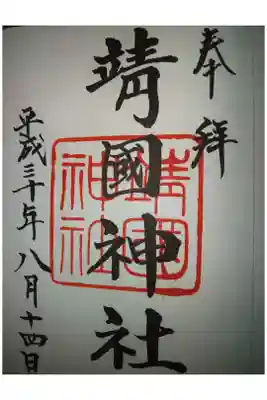 奉拝
靖國神社
靖國神社
平成三十年八月十四日